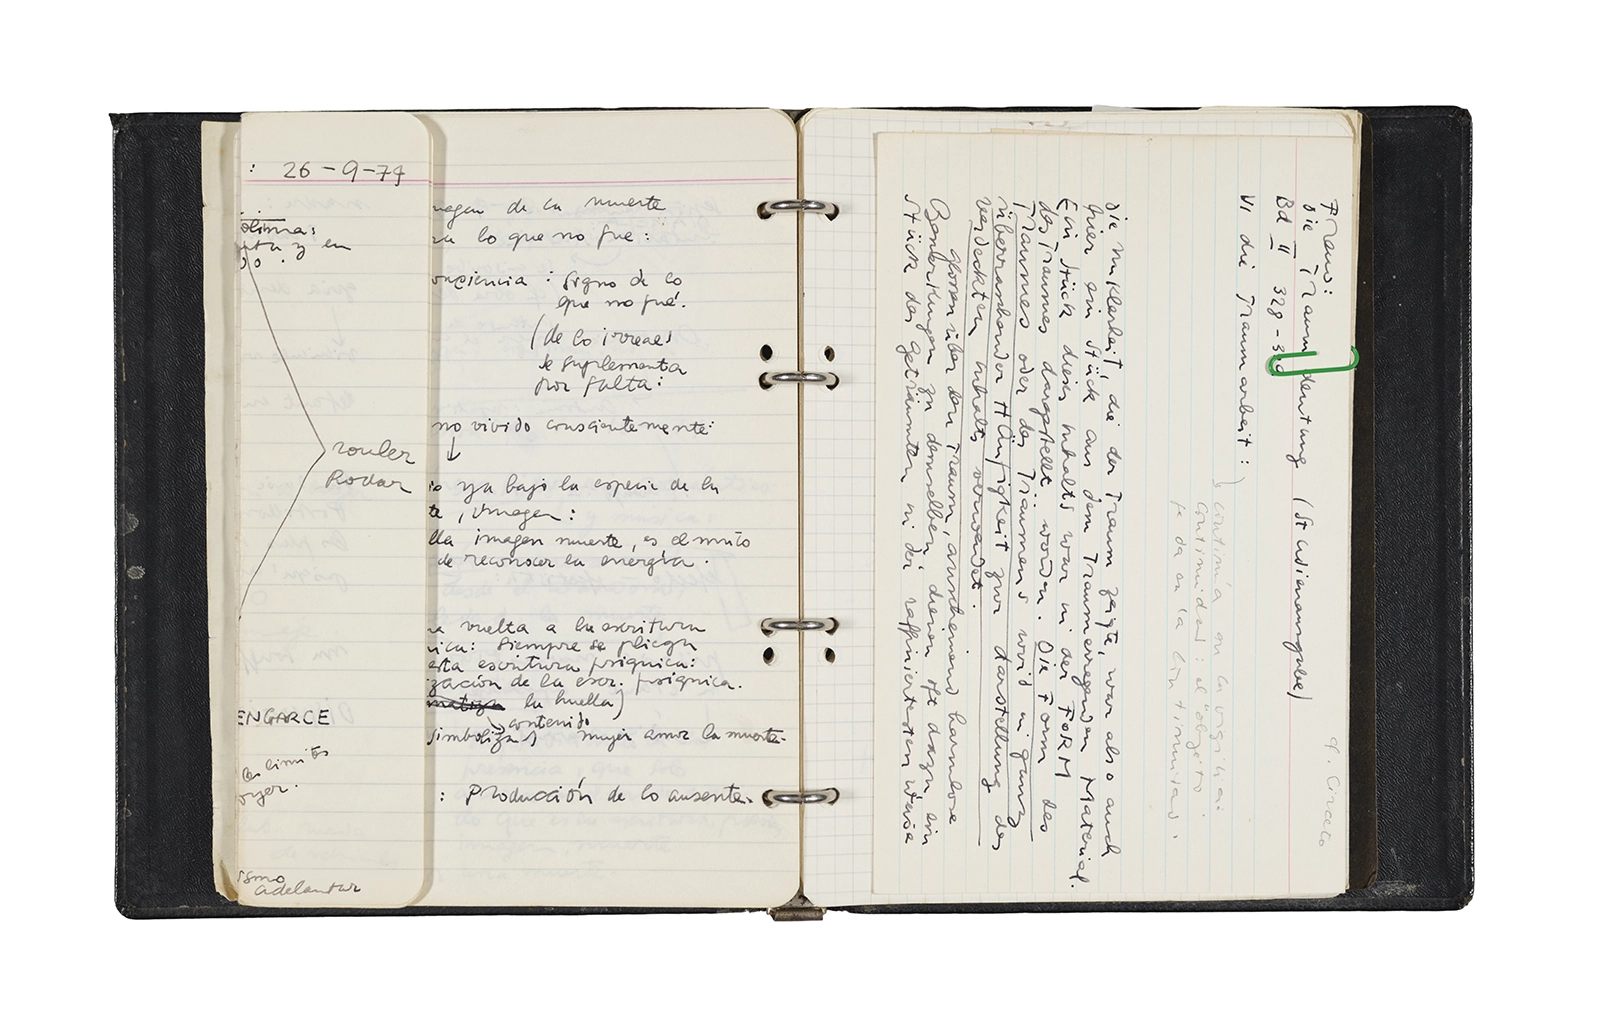 : 26-9-74
ita y en
rouler
Rodar
ENGARCE
los limites
ismo
adelantar
magen de la muerte
ra lo que no fue:
onsciencia : signo de lo
que no fué.
(de lo irreal)
se suplementa
por falta:
no vivido conscientemente:
↓
io ya bajo la especie de la
te, imagen:
lla imagen muerte, es el
de reconocer la energía.
na vuelta a la escritura
nica: siempre se pliega
esta escritura psíquica:
zación de la escr. psíquica.
la huella)
contenido
simboliza mujer amor la muerte.
: Producción de lo ausente.
Freud:
Die Traumdeutung (Studienausgabe)
Bd II 328-3
VI die Traumarbeit:
continúa en la vigilia:
continuidad: el "objeto"
se da en la continuidad.
die Unklarheit, die der Traum zeigte, war also auch
hier ein Stück aus dem traumerregenden Material.
Ein Stück dieses Inhalts war in der FORM
des Traumes dargestellt worden. Die Form des
Traumes oder des Träumens wird in ganz
überraschender Häufigkeit zur Darstellung des
verdeckten Inhalts verwendet.
Glossen über den Traum, anscheinend harmlose
Bemerkungen zu demselben, dienen oft dazu ein
Stück des Geträumten in der raffiniertesten Weise